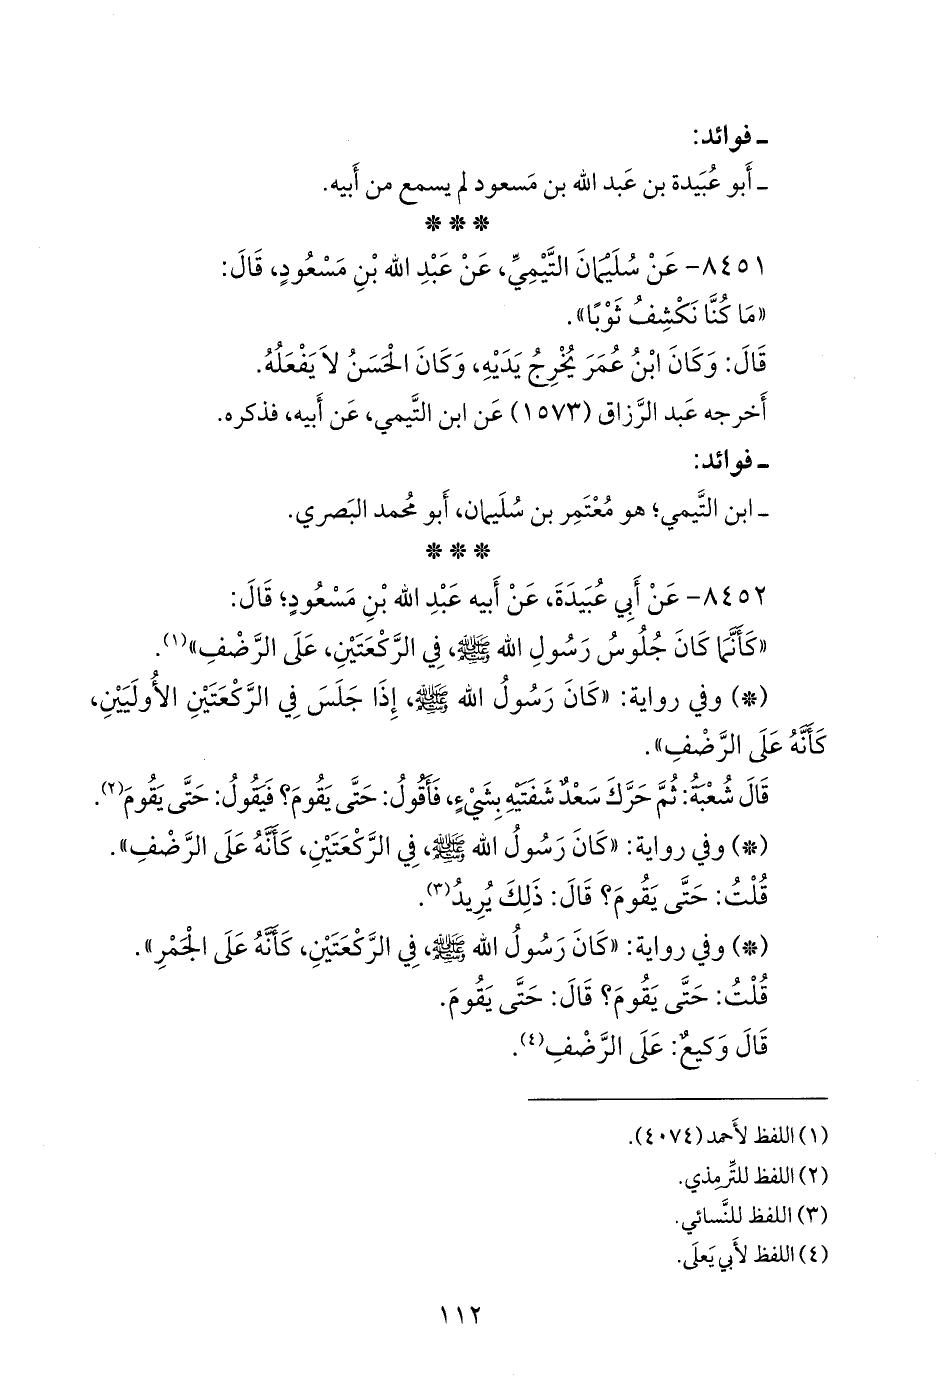 ـ فوائد:
ـ أَبو عُبَيدة بن عَبد الله بن مَسعود لم يسمع من أَبيه.
❊ ❊ ❊
٨٤٥١- عَنْ سُلَيْمَانَ التَّيْمِيِّ، عَنْ عَبْدِ الله بْنِ مَسْعُودٍ، قَالَ:
«مَا كُنَّا نَكْشِفُ ثَوْبًا».
قَالَ: وَكَانَ ابْنُ عُمَرَ يُخْرِجُ يَدَيْهِ، وَكَانَ الْحَسَنُ لاَ يَفْعَلُهُ.
أَخرجه عَبد الرَّزاق (١٥٧٣) عَن ابن التَّيمي، عَن أَبيه، فذكره.
ـ فوائد:
ـ ابن التَّيمي؛ هو مُعْتَمِر بن سُلَيمان، أَبو مُحمد البَصري.
❊ ❊ ❊
٨٤٥٢- عَنْ أَبِي عُبَيْدَةَ، عَنْ أَبيه عَبْدِ الله بْنِ مَسْعُودٍ؛ قَالَ:
«كَأَنَّمَا كَانَ جُلُوسُ رَسُولِ الله ﷺ، فِي الرَّكْعَتَيْنِ، عَلَى الرَّضْفِ»(١).
(❊) وفي رواية: «كَانَ رَسُولُ الله ﷺ، إِذَا جَلَسَ فِي الرَّكْعَتَيْنِ الأُولَيَيْنِ،
كَأَنَّهُ عَلَى الرَّضْفِ».
قَالَ شُعْبَةُ: ثُمَّ حَرَّكَ سَعْدٌ شَفَتَيْهِ بِشَيْءٍ، فَأَقُولُ: حَتَّى يَقُومَ؟ فَيَقُولُ: حَتَّى يَقُومَ(٢).
(❊) وفي رواية: «كَانَ رَسُولُ الله ﷺ، فِي الرَّكْعَتَيْنِ، كَأَنَّهُ عَلَى الرَّضْفِ».
قُلْتُ: حَتَّى يَقُومَ؟ قَالَ: ذَلِكَ يُرِيدُ(٣).
(❊) وفي رواية: «كَانَ رَسُولُ الله ﷺ، فِي الرَّكْعَتَيْنِ، كَأَنَّهُ عَلَى الْجَمْرِ».
قُلْتُ: حَتَّى يَقُومَ؟ قَالَ: حَتَّى يَقُومَ.
قَالَ وَكيعٌ: عَلَى الرَّضْفِ(٤).
(١) اللفظ لأَحمد (٤٠٧٤).
(٢) اللفظ للتِّرمِذي.
(٣) اللفظ للنَّسائي.
(٤) اللفظ لأَبي يَعلَى.
١١٢